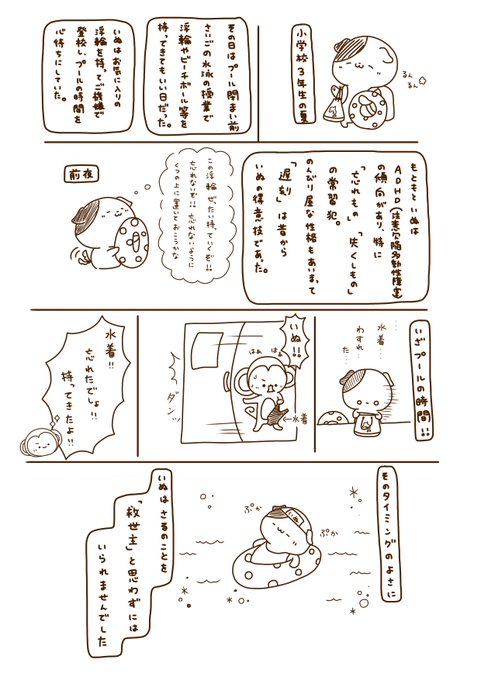 小学校3年生の夏
るん
るん
その日はプール閉まい前
さいごの水泳の授業で
浮輪やビーチボール等を
持ってきてもいい日だった。
いぬはお気に入りの
浮輪を持ってご機嫌で
登校し、プールの時間を
心待ちにしていた。
もともといぬは
ADHD(注意欠陥多動性障害)
の傾向があり、特に
「忘れもの」「失くしもの」
の常習犯。
のんびり屋な性格もあいまって
「遅刻」は昔から
いぬの得意技であった。
この浮輪ぜったい持っていくぞ!!
忘れないぞ!!忘れないように
くつの上に置いておこうかな
前夜
いざプールの時間!!
水着…
わすれ
た…
いぬ!!
はぁ
はぁ
←水着
ダンッ
水着!!
忘れたでしょ!!
持ってきたよ!!
そのタイミングのよさに
いぬ
ぷか
ぷか
いぬはさるのことを
「救世主」と思わずには
いられませんでした